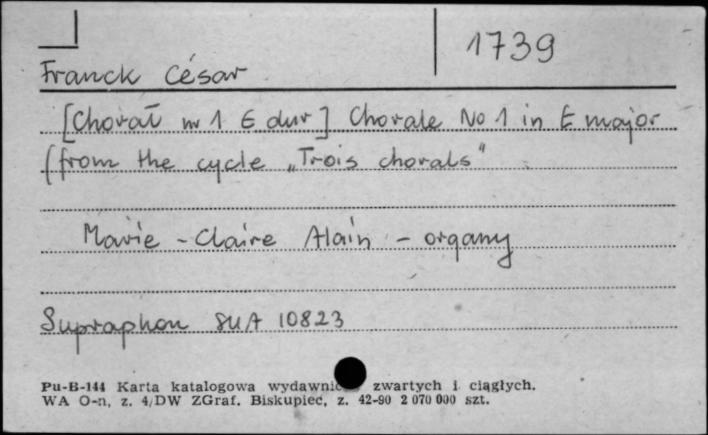 1739
Franck César
[Chorał nr 1 E dur] Chorale No 1 in E major
(from the cycle „Trois chorals"
Marie - Claire Alain - organy
Supraphon SUA 10823
Pu-B-144 Karta katalogowa zwartych i ciągłych.
WA O-n, z. 4/DW ZGraf. Biskupiec, z. 42-90 2 070 000 szt.